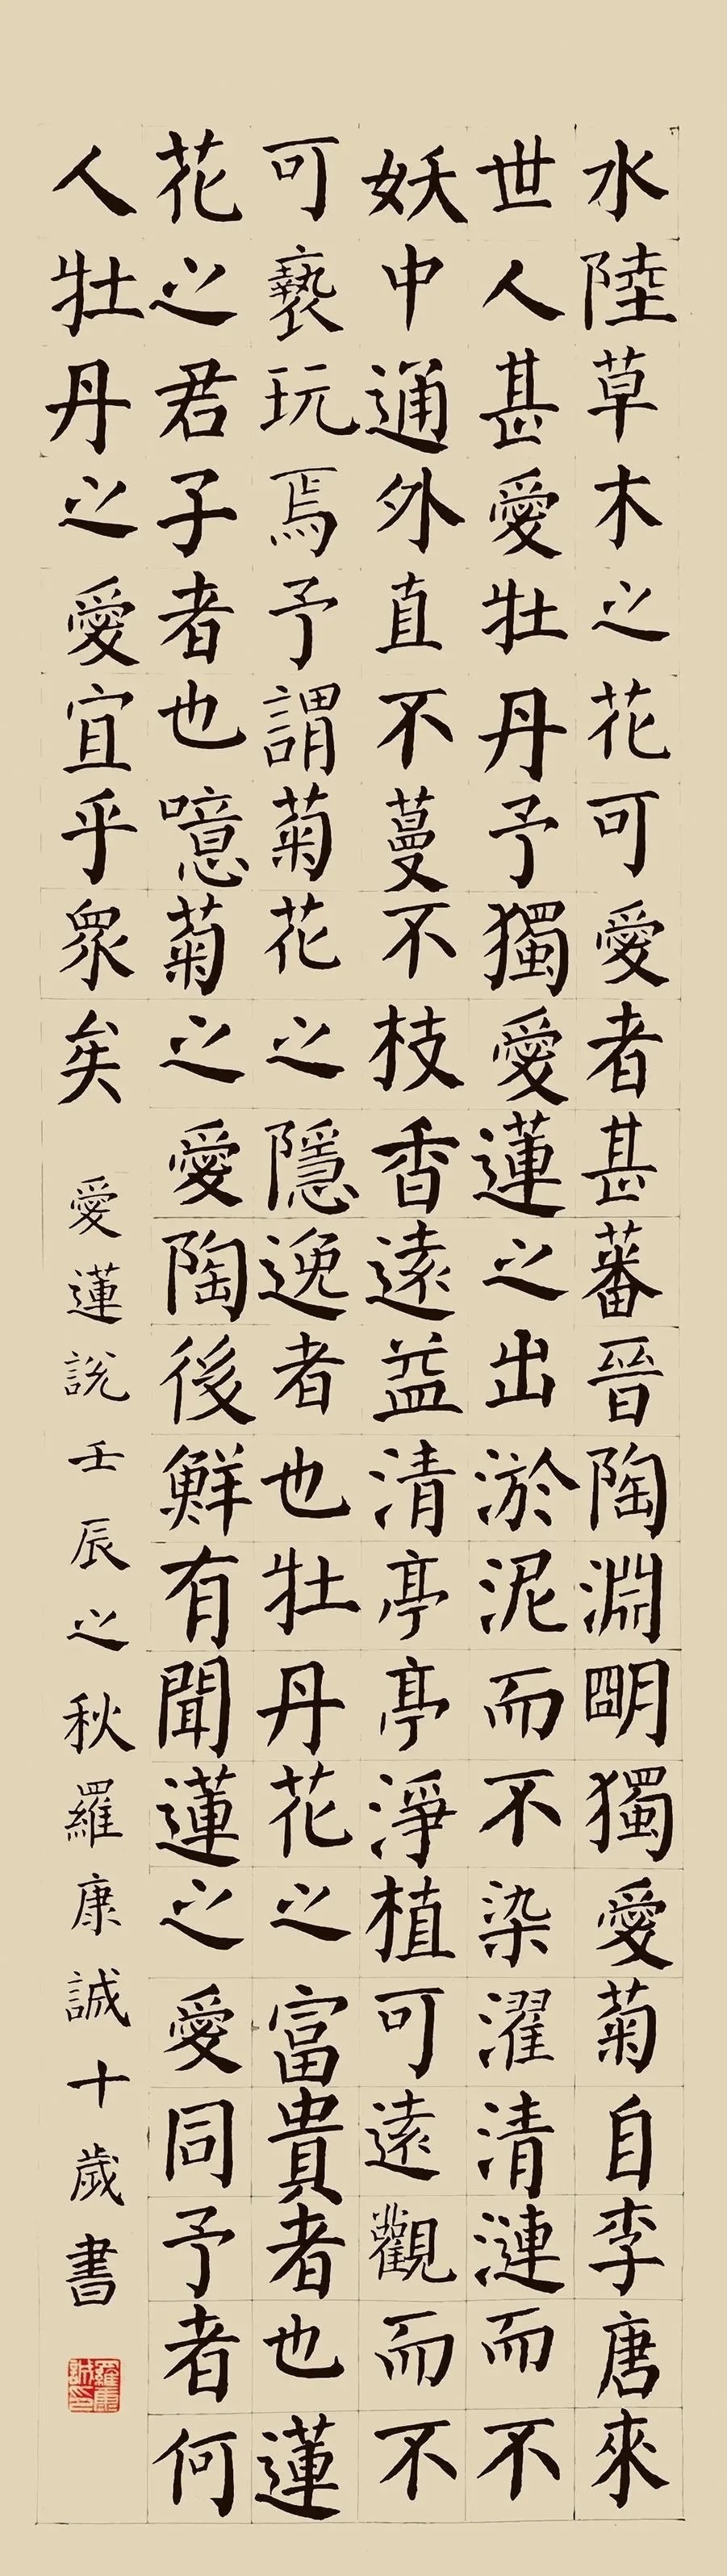 水陸草木之花可愛者甚蕃晉陶淵朙獨愛菊自李唐來
世人甚愛牡丹予獨愛蓮之出淤泥而不染濯清漣而不
妖中通外直不蔓不枝香遠益清亭亭淨植可遠觀而不
可褻玩焉予謂菊花之隱逸者也牡丹花之富貴者也蓮
花之君子者也噫菊之愛陶後鮮有聞蓮之愛同予者何
人牡丹之愛宜乎眾矣 愛蓮說壬辰之秋羅康誠十歲書
羅康誠印